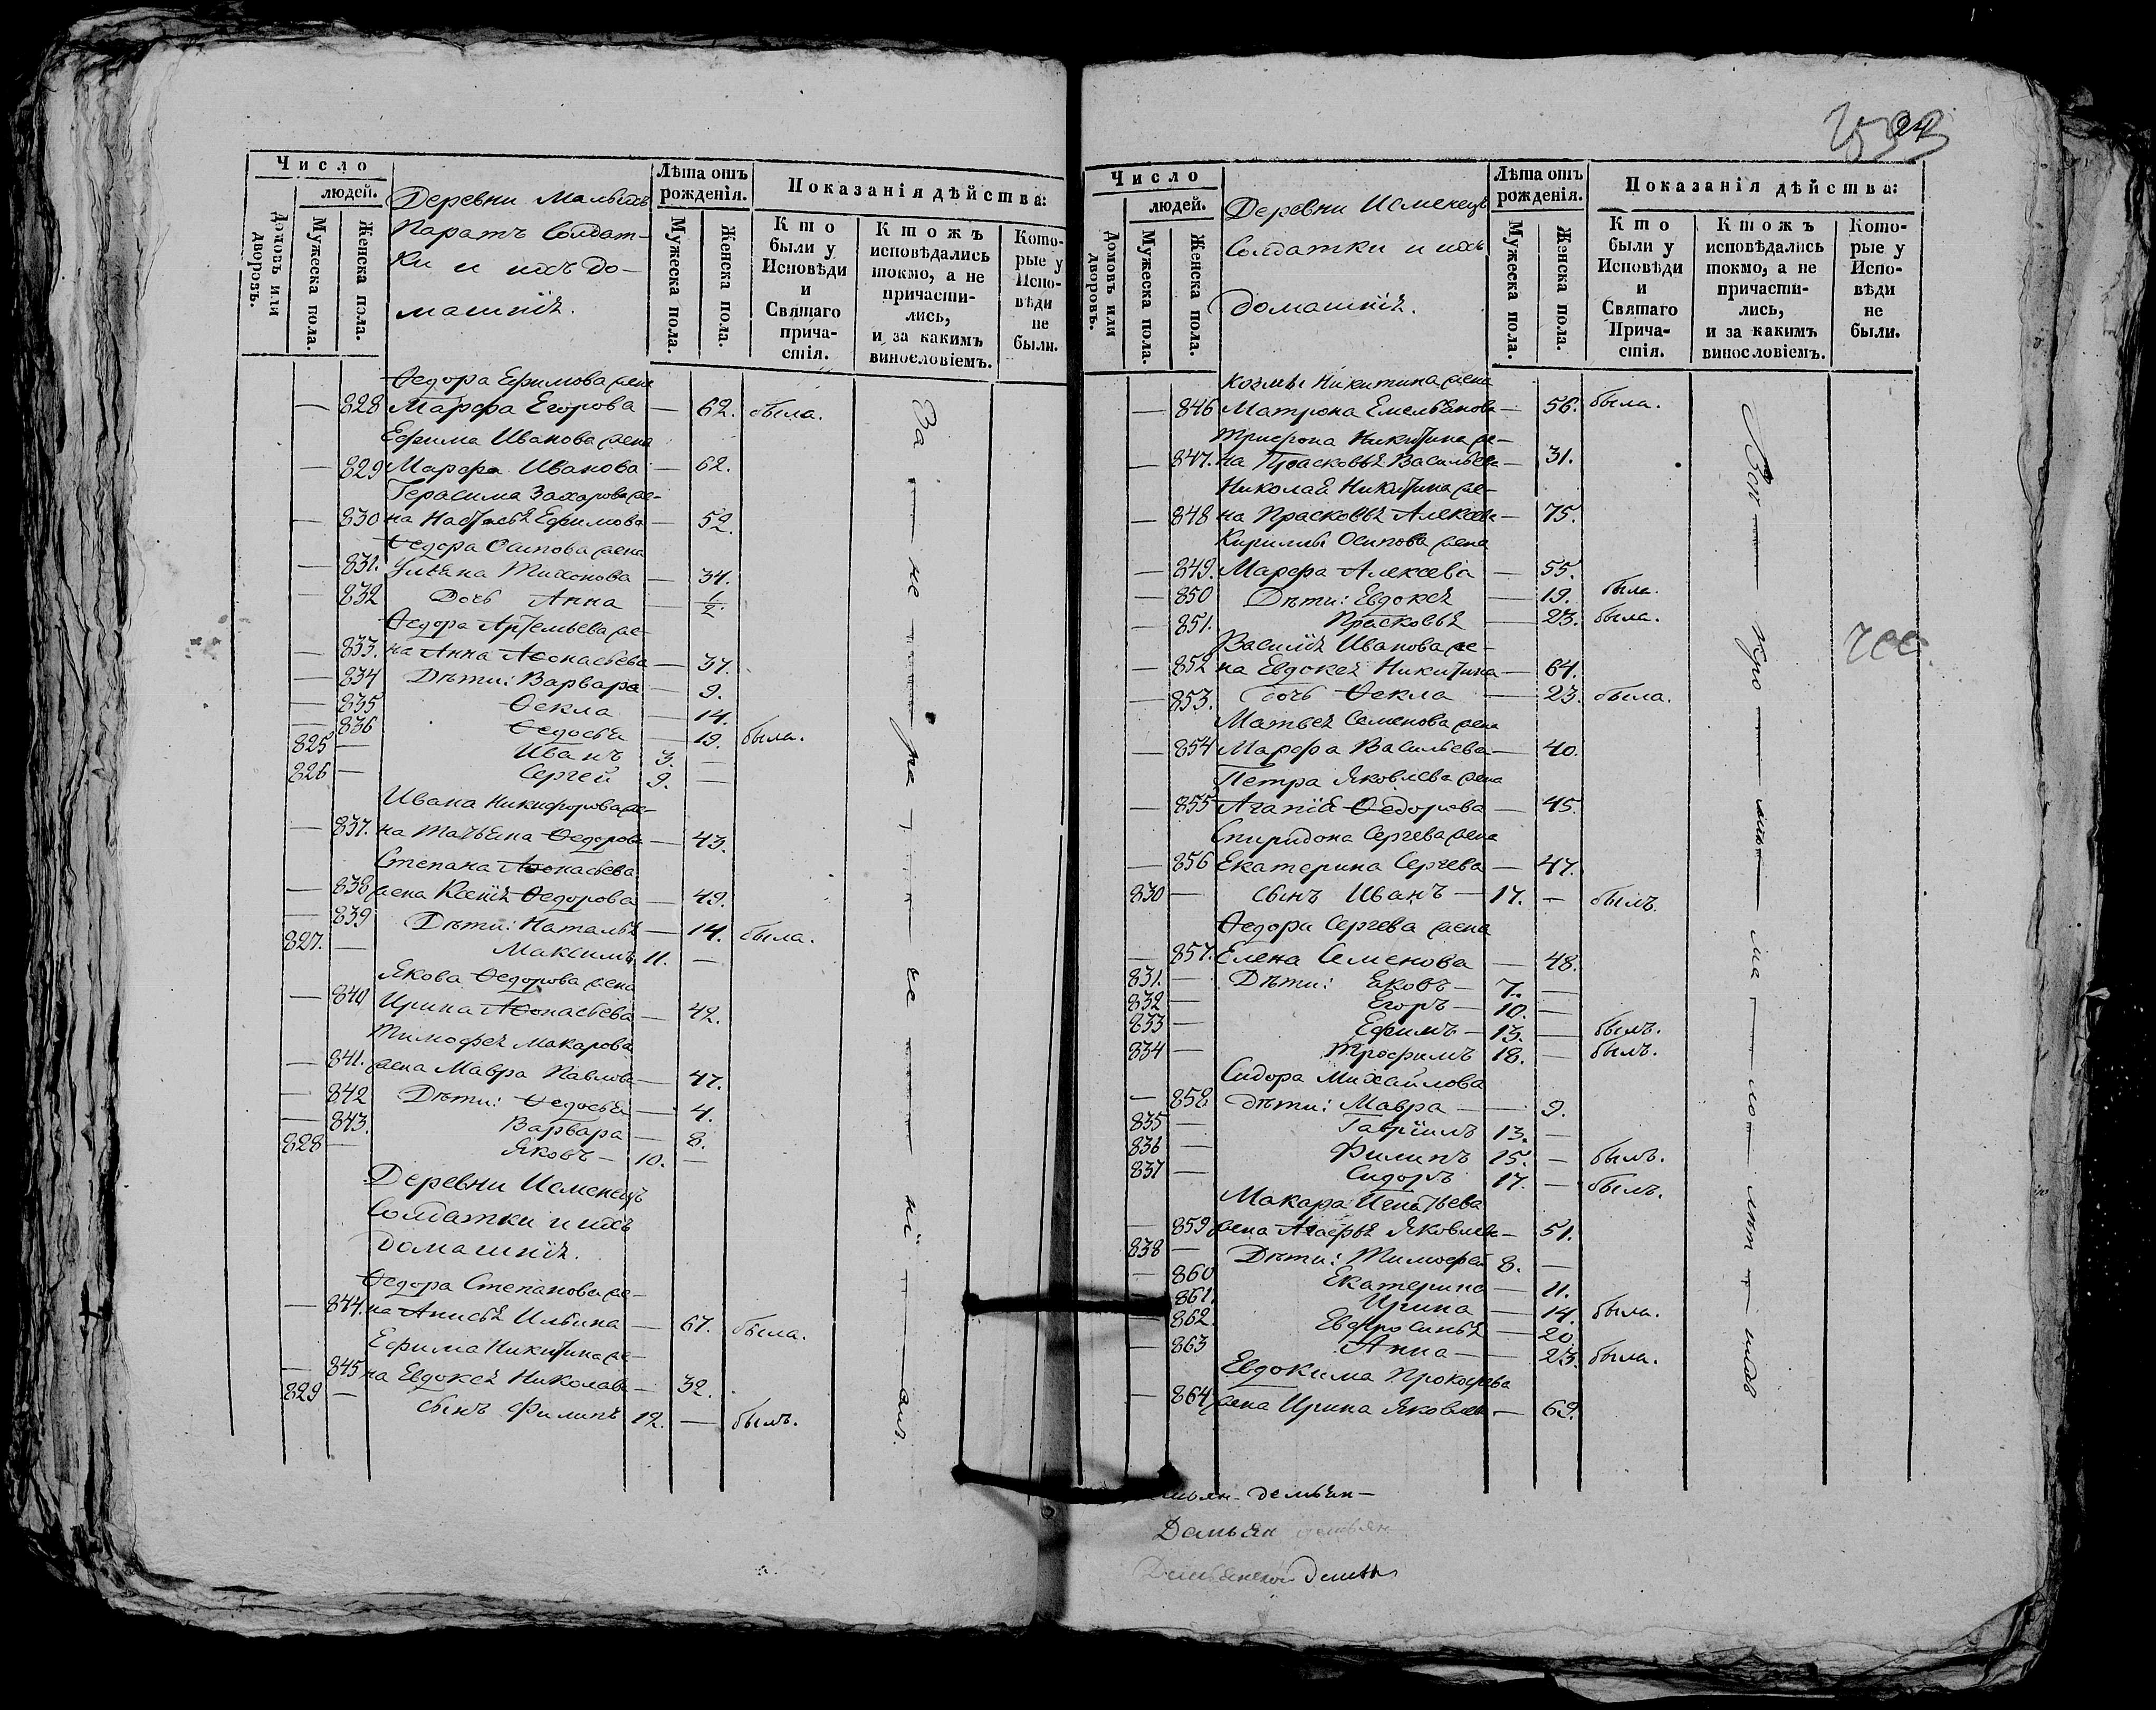 Число
людей.
Домовъ или дворовъ.
Мужеска пола.
Женска пола.
Деревни Малыхъ
Паратъ Солдат-
ки и ихъ до-
машнія.
Лѣта отъ
рожденія.
Мужеска пола.
Женска пола.
Показанія дѣйства:
Кто
были у
Исповѣди
и
Святаго
прича-
стія.
Ктожъ
исповѣдались
токмо, а не
причасти-
лись,
и за какимъ
винословіемъ.
Кото-
рые у
Испо-
вѣди
не
были.
Ѳедора Ефимова жена
— 828 Марфа Егорова — 62. была.
Ефима Иванова жена
— 829 Марфа Иванова — 62.
Герасима Захарова же-
— 830 на Настасья Ефимова — 52.
Ѳедора Осипова жена
— 831. Ульяна Тихонова — 34.
— 832 Дочь Анна — 1/2.
Ѳедора Артемьева же-
— 833. на Анна Аѳонасьева — 37.
— 834 Дѣти: Варвара — 9.
— 835 Ѳекла — 14.
— 836 Ѳедосья — 19. была.
825 — Иванъ 3. —
826 — Сергей 9. —
Ивана Никифорова же-
— 837. на Татьяна Ѳедорова — 43.
Степана Аѳонасьева
— 838 жена Ксенія Ѳедорова — 49.
— 839 Дѣти: Наталья — 14. была.
827. — Максимъ 11. —
Якова Ѳедорова жена
— 840 Ирина Аѳонасьева — 42.
Тимофея Макарова
— 841. жена Мавра Павлова — 47.
— 842 Дѣти: Ѳедосья — 4.
— 843. Варвара — 8.
828 — Яковъ — 10. —
Деревни Исменецъ
Солдатки и ихъ
домашнія.
Ѳедора Степанова же-
— 844. на Анисья Ильина — 67. была.
Ефима Никитина же-
— 845 на Евдокея Николаева — 32.
829 — Сынъ Филипъ 12. — былъ.
За
не
ра
че
ні
Число
людей.
Домовъ или дворовъ.
Мужеска пола.
Женска пола.
Деревни Исменецъ
Солдатки и ихъ
домашнія.
Лѣта отъ
рожденія.
Мужеска пола.
Женска пола.
Показанія дѣйства:
Кто
были у
Исповѣди
и
Святаго
Прича-
стія.
Ктожъ
исповѣдались
токмо, а не
причасти-
лись,
и за какимъ
винословіемъ.
Кото-
рые у
Испо-
вѣди
не
были.
Козмы Никитина жена
— 846 Матрона Емельянова — 56. была.
Трифона Никитина же-
— 847. на Прасковья Васильева — 31.
Николая Никитина же-
— 848 на Прасковья Алексева — 75.
Кирилы Осипова жена
— 849. Марфа Алексева — 55.
— 850 Дѣти: Евдокея — 19. была.
— 851. Прасковья — 23. была.
Василія Иванова же-
— 852 на Евдокея Никитина — 64.
— 853. Дочь Ѳекла — 23. была.
Матвея Семенова жена
— 854 Марфа Васильева — 40.
Петра Яковлева жена
— 855 Агапія Ѳедорова — 45.
Спиридона Сергева жена
— 856 Екатерина Сергева — 47.
830 — Сынъ Иванъ — 17. — былъ.
Ѳедора Сергева жена
— 857. Елена Семенова — 48.
831. — Дѣти: Яковъ — 7. —
832 — Егоръ — 10. —
833 — Ефимъ — 13. — былъ.
834 — Трофимъ 18. — былъ.
Сидора Михайлова
— 858 дѣти: Мавра — 9.
835 — Гавріилъ 13. —
836 — Филипъ 15. — былъ.
837 — Сидоръ 17. — былъ.
Макара Игнатьева
— 859 жена Агафья Яковлева — 51.
838 — Дѣти: Тимофей 8. —
— 860 Екатерина — 11.
— 861. Ирина — 14. была.
— 862. Евфросинья — 20.
— 863 Анна — 23. была.
Евдокима Прокофьева
— 864 жена Ирина Яковлева — 69.
ма
ло
лѣт
Демьян-
Демьян